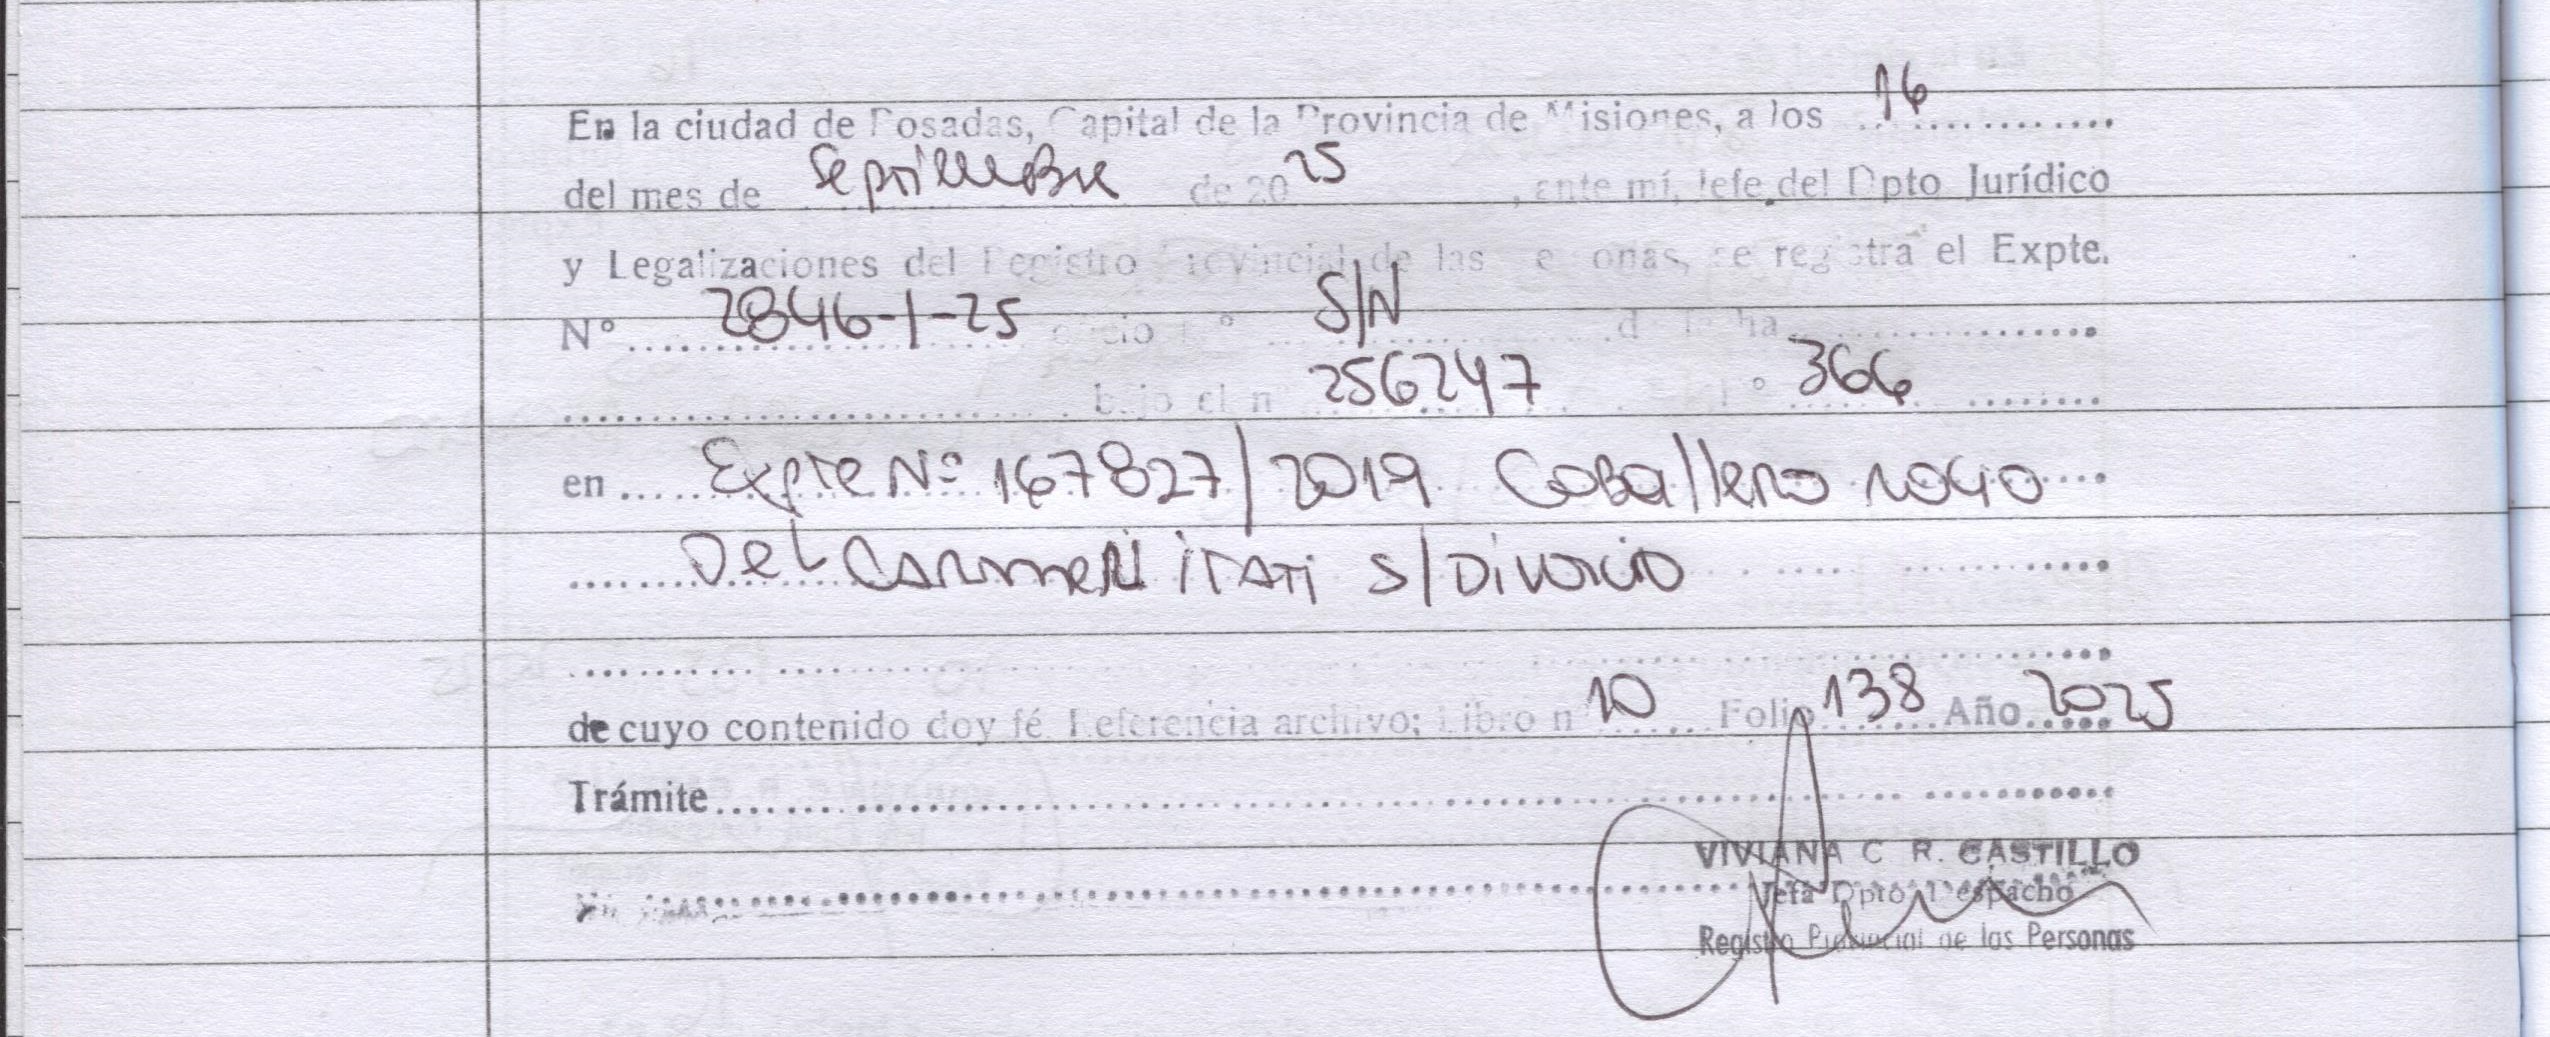 En la ciudad de Posadas, Capital de la Provincia de Misiones, a los 16
del mes de Septiembre de 2025, ante mí, Jefe del Dpto Jurídico
y Legalizaciones del Registro Provincial de las Personas, se registra el Expte.
N° 2846-1-25 oficio n° S/N de fecha
bajo el n° 256247 366
en Expte Nº 167827/2019 Caballero rocio
Del Carmen itati s/Divorcio
de cuyo contenido doy fé. Referencia archivo; Libro nº 10 Folio 138 Año 2025
Trámite
VIVIANA C R. CASTILLO
Jefa Dpto Despacho
Registro Provincial de las Personas